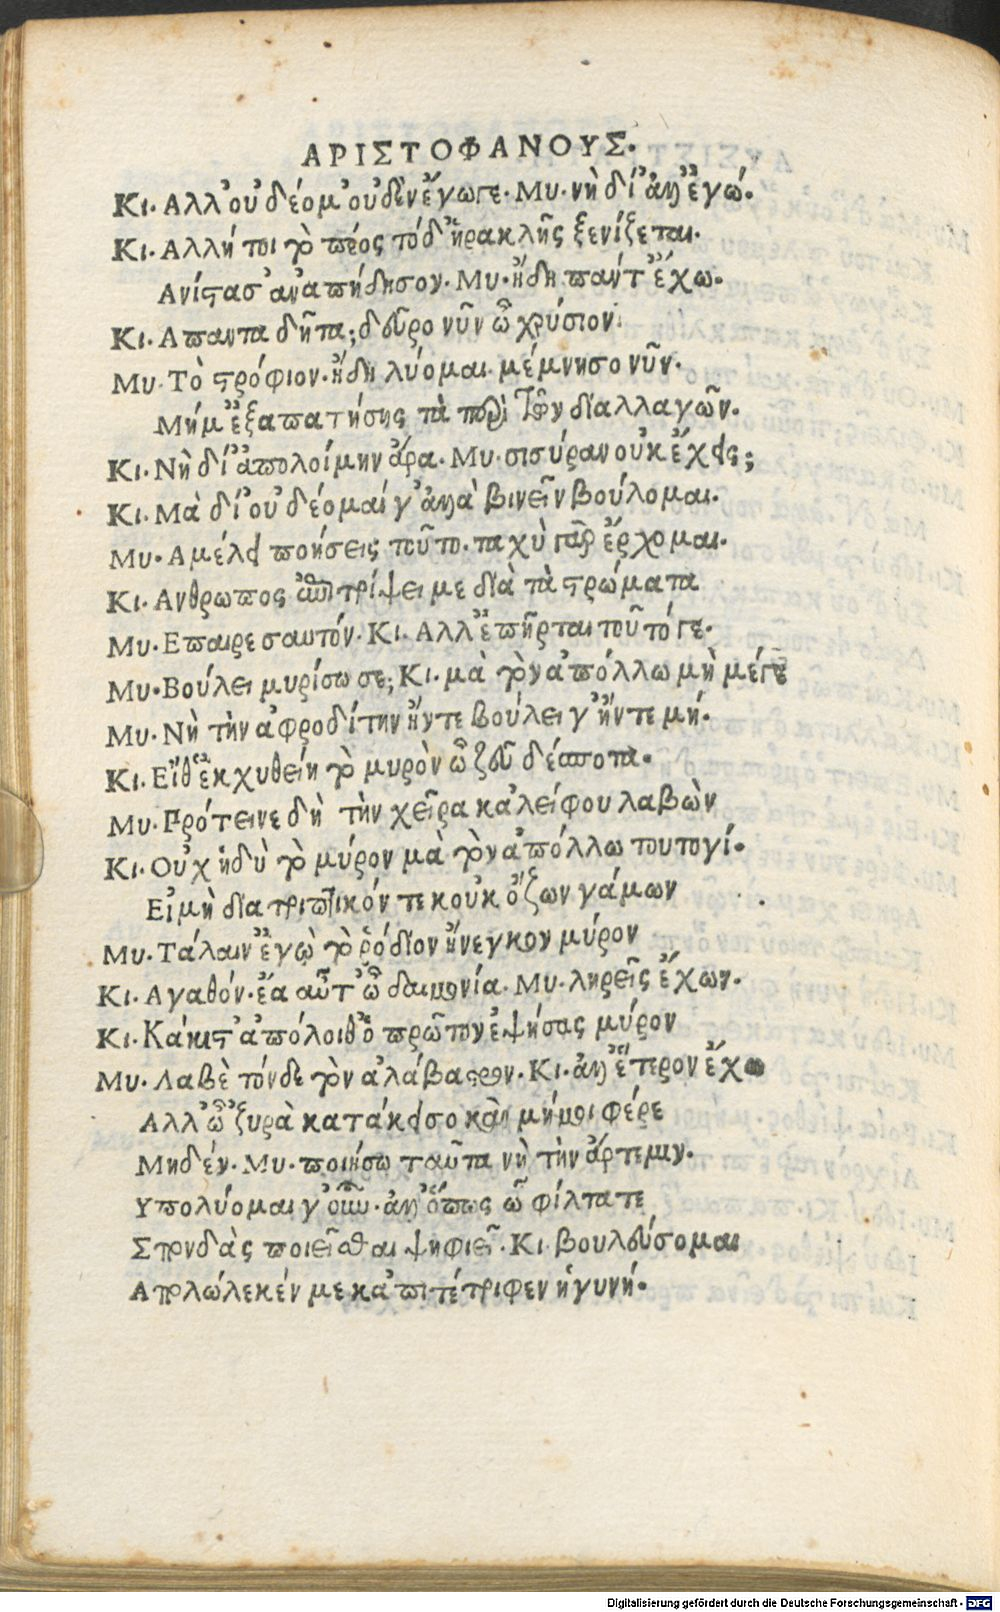 ΑΡΙΣΤΟΦΑΝΟΥΣ.
Κι. Αλλ' οὐ δέομ' οὐδὲν ἔγωγε. Μυ. νὴ δί' ἀλλ' ἐγώ.
Κι. Αλλ' ἤ τοι τὸ πέος τόδ' ἡρακλῆς ξενίζεται.
Ανίστασ' ἀναπήδησον. Μυ. ἤδη πάντ' ἔχω.
Κι. Απαντα δῆτα; δεῦρο νῦν ὦ χρύσιον.
Μυ. Τὸ στρόφιον. ἤδη λύομαι. μέμνησο νῦν.
Μή μ' ἐξαπατήσῃς τὰ περὶ τῶν διαλλαγῶν.
Κι. Νὴ δί' ἀπολοίμην ἄρα. Μυ. σισύραν οὐκ ἔχεις;
Κι. Μὰ δί' οὐ δέομαί γ' ἀλλὰ βινεῖν βούλομαι.
Μυ. Αμέλει ποήσεις τοῦτο. ταχὺ γὰρ ἔρχομαι.
Κι. Ανθρωπος ἐπιτρίψει με διὰ τὰ στρώματα
Μυ. Επαιρε σαυτόν. Κι. Αλλ' ἐπῆρται τοῦτό γε.
Μυ. Βούλει μυρίσω σε; Κι. μὰ τὸν ἀπόλλω μὴ μέ γε
Μυ. Νὴ τὴν ἀφροδίτην ἤν τε βούλει γ' ἤν τε μή.
Κι. Εἴθ' ἐκχυθείη τὸ μυρὸν ὦ ζεῦ δέσποτα.
Μυ. Πρότεινε δὴ τὴν χεῖρα κἀλείφου λαβὼν
Κι. Οὐχ ἡδὺ τὸ μύρον μὰ τὸν ἀπόλλω τουτογί.
Εἰ μὴ διατριπτικόν τε κοὐκ ὄζων γάμων
Μυ. Τάλαιν' ἐγὼ τὸ ῥόδιον ἤνεγκον μύρον
Κι. Αγαθόν. ἔα αὔτ' ὦ δαιμονία. Μυ. ληρεῖς ἔχων.
Κι. Κάκιστ' ἀπόλοιθ' ὁ πρῶτον ἑψήσας μύρον
Μυ. Λαβὲ τόνδε τὸν ἀλάβαστρον. Κι. ἀλλ' ἕτερον ἔχω
Αλλ' ᾦζυρὰ κατάκεισο καὶ μή μοι φέρε
Μηδέν. Μυ. ποιήσω ταῦτα νὴ τὴν ἄρτεμιν.
Υπολύομαι γ' οὖν. ἀλλ' ὅπως ὦ φίλτατε
Σπονδὰς ποιεῖσθαι ψηφιεῖ. Κι. βουλεύσομαι
Απολώλεκέν με κἀπιτέτριφεν ἡ γυνή.
Digitalisierung gefördert durch die Deutsche Forschungsgemeinschaft - DFG